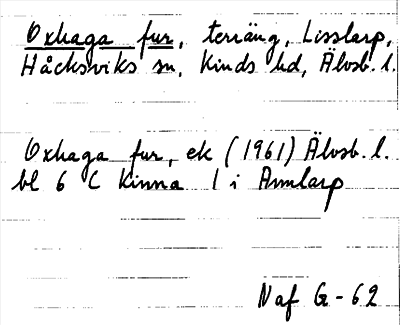 Oxhaga fur, terräng, Lisslarp,
Håcksviks sn, Kinds hd, Älvsb. l.
Oxhaga fur, ek (1961) Älvsb. l.
bl 6 C Kinna 1 i Annlarp
Naf G-62